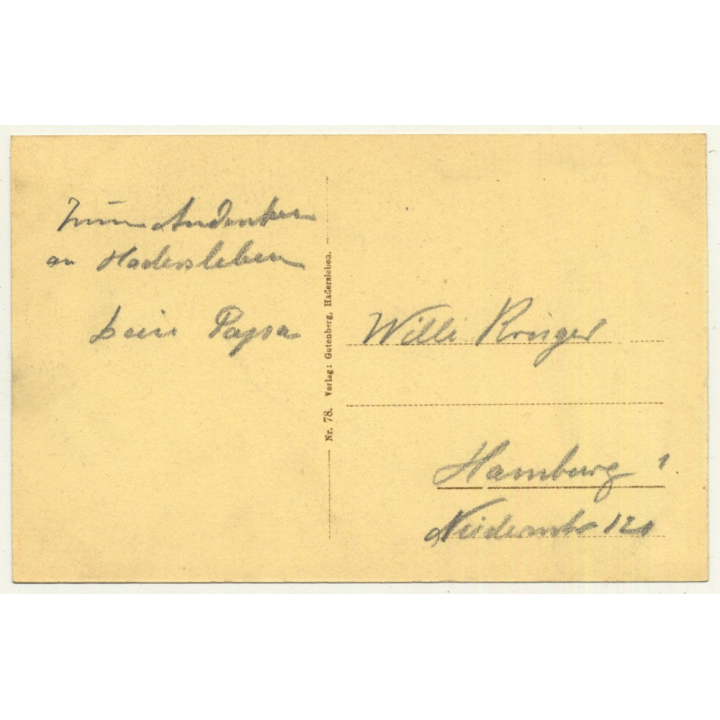 Zum Andenken
an Hadersleben
Dein Papa
Nr. 78. Verlag: Gutenberg, Hadersleben.
Willi
Hamburg 1
120